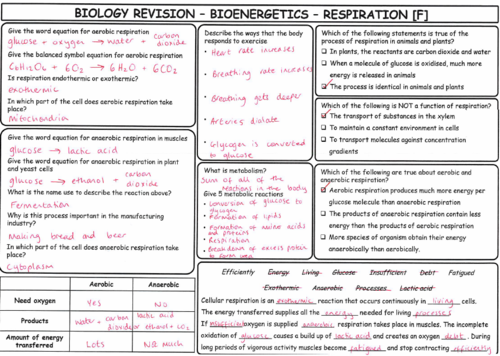 BIOLOGY REVISION – BIOENERGETICS – RESPIRATION [F]
Give the word equation for aerobic respiration
glucose + oxygen → water + carbon dioxide
Give the balanced symbol equation for aerobic respiration
C6H12O6 + 6O2 → 6H2O + 6CO2
Is respiration endothermic or exothermic?
exothermic
In which part of the cell does aerobic respiration take
place?
Mitochondria
Give the word equation for anaerobic respiration in muscles
glucose → lactic acid
Give the word equation for anaerobic respiration in plant
and yeast cells
glucose → ethanol + carbon dioxide
What is the name use to describe the reaction above?
Fermentation
Why is this process important in the manufacturing
industry?
Making bread and beer
In which part of the cell does anaerobic respiration take
place?
Cytoplasm
Aerobic Anaerobic
Need oxygen YES NO
Products water + carbon dioxide lactic acid or ethanol + CO2
Amount of energy
transferred Lots Not much
Describe the ways that the body
responds to exercise
• Heart rate increases
• Breathing rate increases
• Breathing gets deeper
• Arteries dialate
• Glycogen is converted
to glucose
What is metabolism?
Sum of all of the
reactions in the body
Give 5 metabolic reactions
• Conversion of glucose to
glycogen
• Formation of lipids
• Formation of amino acids
and proteins
• Respiration
• Breakdown of excess protein
to form urea
Which of the following statements is true of the
process of respiration in animals and plants?
In plants, the reactants are carbon dioxide and water
When a molecule of glucose is oxidised, much more
energy is released in animals
The process is identical in animals and plants
Which of the following is NOT a function of respiration?
The transport of substances in the xylem
To maintain a constant environment in cells
To transport molecules against concentration
gradients
Which of the following are true about aerobic and
anaerobic respiration?
Aerobic respiration produces much more energy per
glucose molecule than anaerobic respiration
The products of anaerobic respiration contain less
energy than the products of aerobic respiration
More species of organism obtain their energy
anaerobically than aerobically.
Efficiently Energy Living Glucose Insufficient Debt Fatigued
Exothermic Anaerobic Processes Lactic acid
Cellular respiration is an exothermic reaction that occurs continuously in living cells.
The energy transferred supplies all the energy needed for living processes
If insufficient oxygen is supplied anaerobic respiration takes place in muscles. The incomplete
oxidation of glucose causes a build up of lactic acid and creates an oxygen debt. During
long periods of vigorous activity muscles become fatigued and stop contracting efficiently